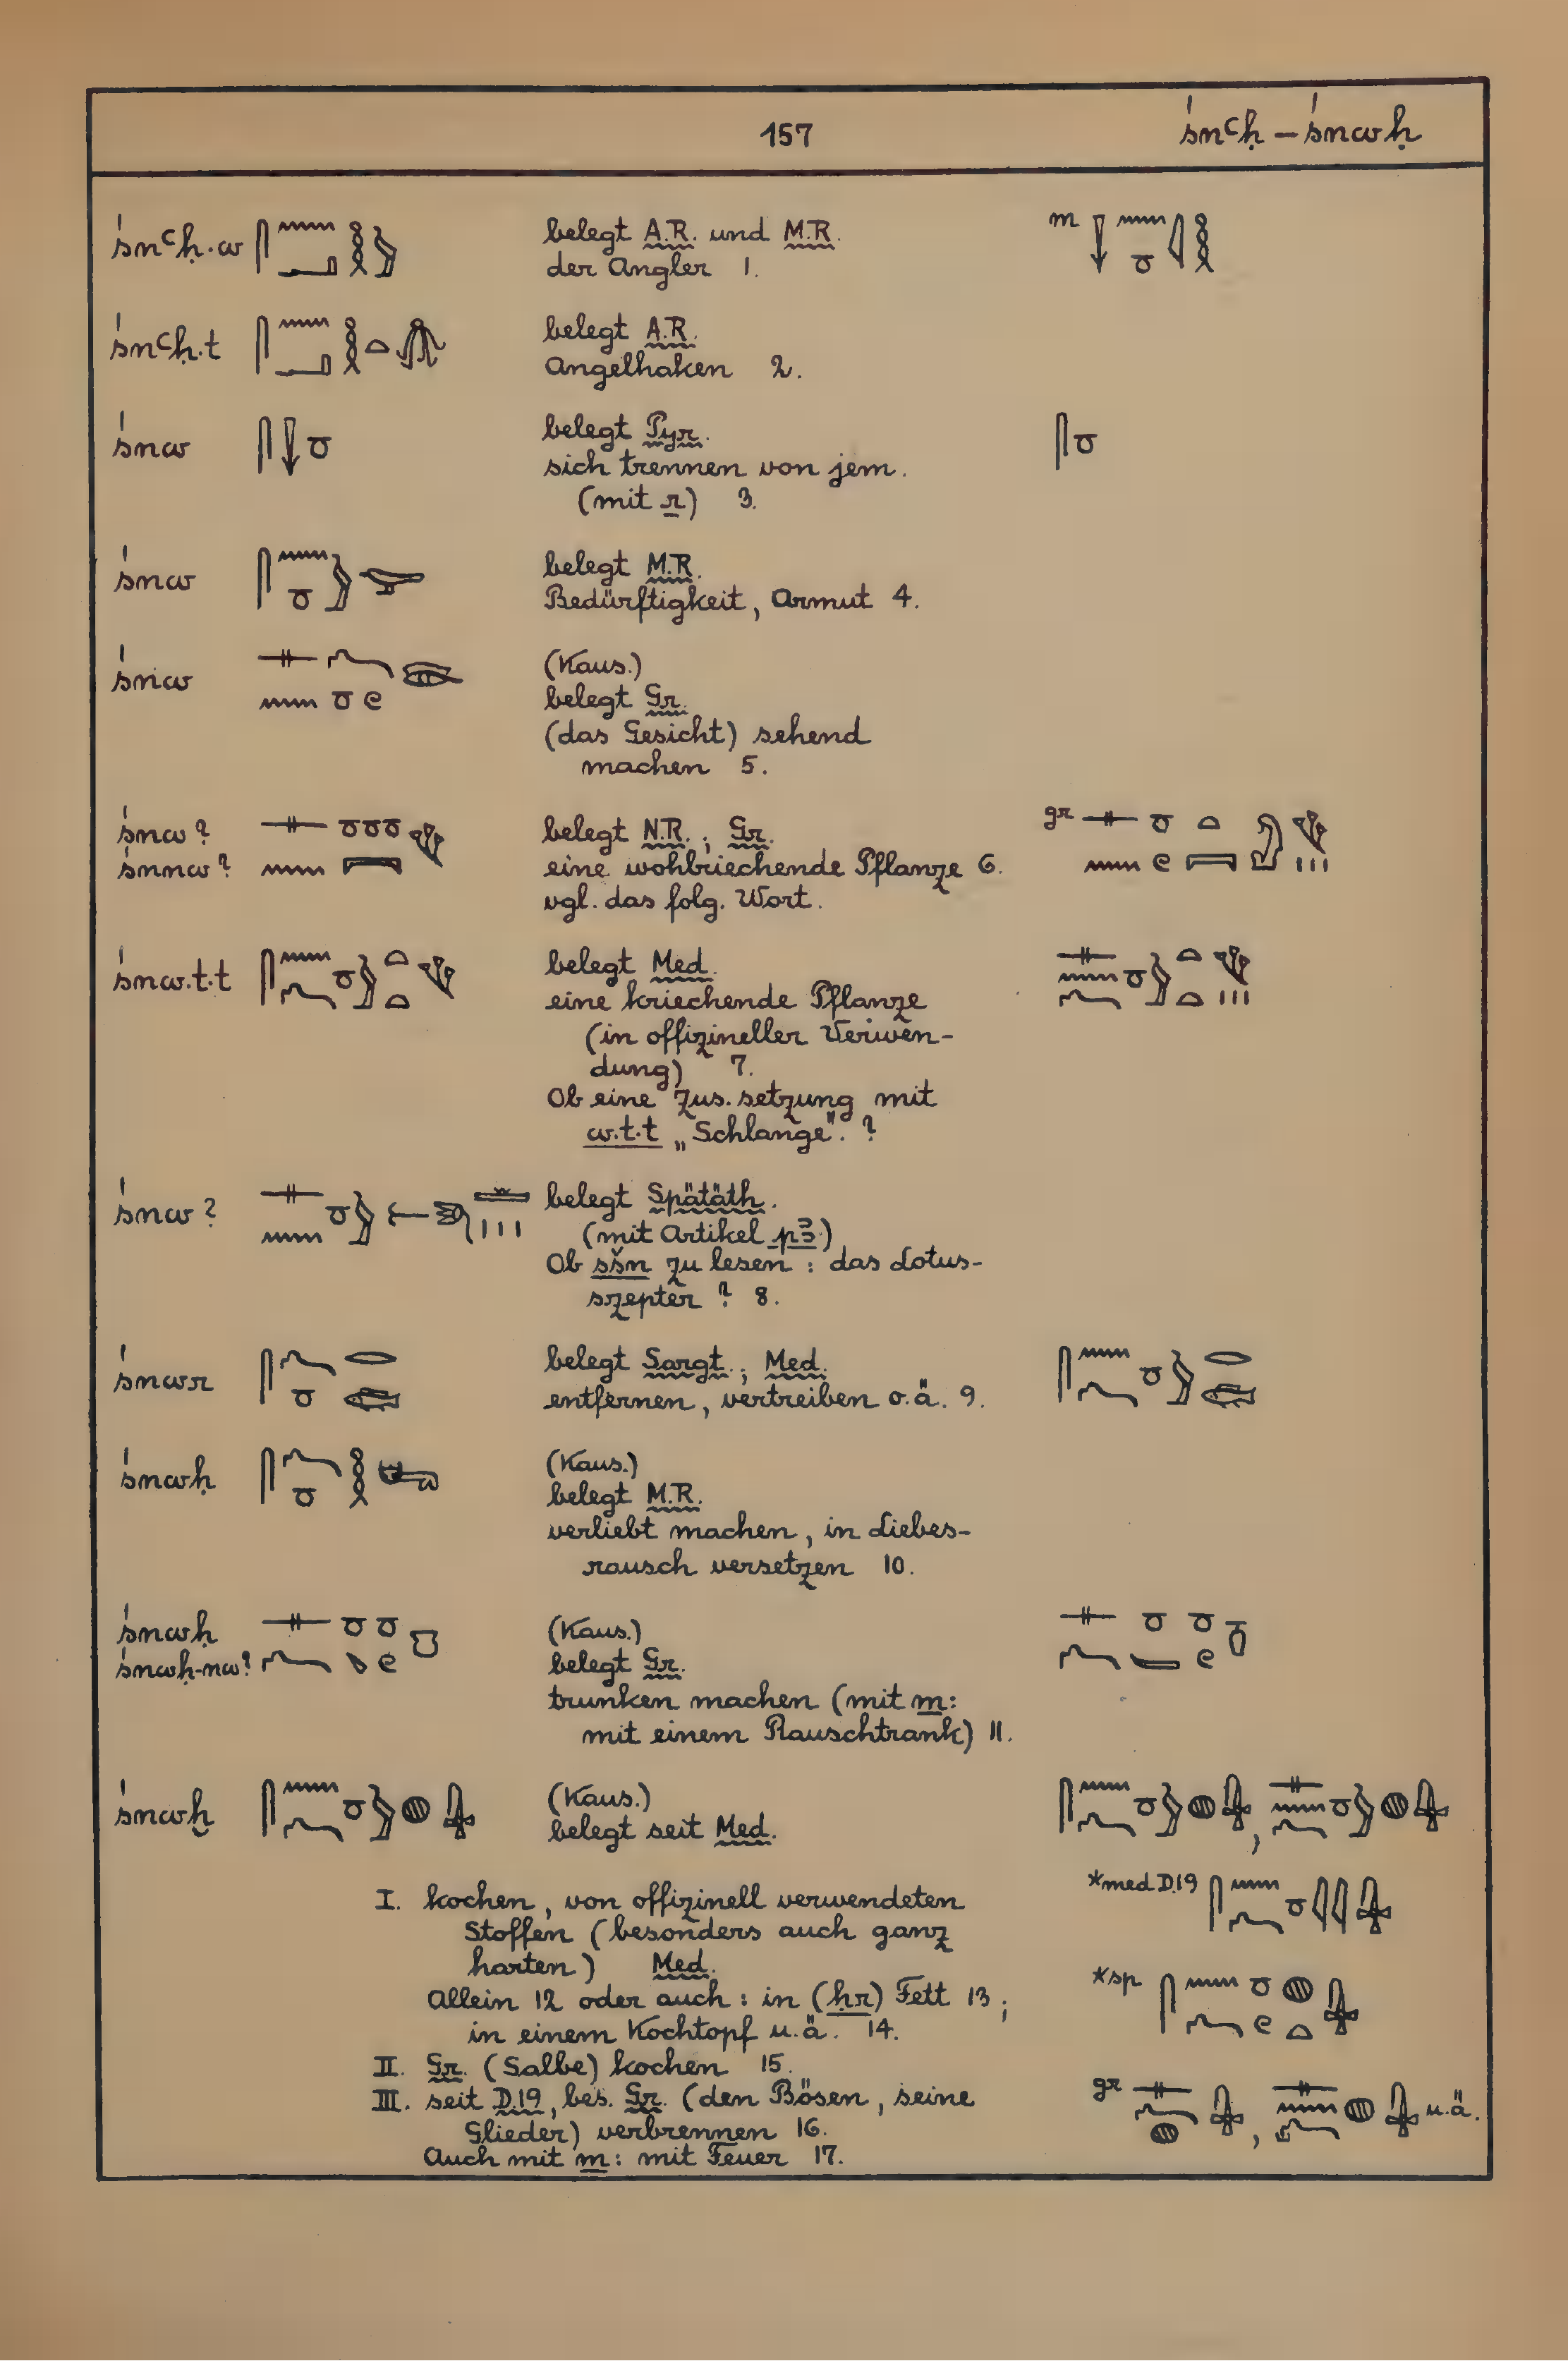 157 śnꜥḥ – śnwḥ
śnꜥḥ.w belegt A.R. und M.R. m
der Angler 1.
śnꜥḥ.t belegt A.R.
Angelhaken 2.
śnw belegt Pyr.
sich trennen von jem.
(mit r) 3.
śnw belegt M.R.
Bedürftigkeit, Armut 4.
śnw (Kaus.)
belegt Gr.
(das Gesicht) sehend
machen 5.
śnw? belegt N.R.; Gr. gr
śnnw? eine wohlriechende Pflanze 6.
vgl. das folg. Wort.
śnw.t.t belegt Med.
eine kriechende Pflanze
(in offizineller Verwen-
dung) 7.
Ob eine Zus.setzung mit
w.t.t „Schlange". ?
śnw? belegt Spätäth.
(mit Artikel pꜣ)
Ob sšn zu lesen : das Lotus-
szepter ? 8.
śnwr belegt Sargt.; Med.
entfernen, vertreiben o.ä. 9.
śnwḥ (Kaus.)
belegt M.R.
verliebt machen, in Liebes-
rausch versetzen 10.
śnwḥ (Kaus.)
śnwḥ-nw? belegt Gr.
trunken machen (mit m:
mit einem Rauschtrank) 11.
śnwḫ (Kaus.)
belegt seit Med.
I. kochen, von offizinell verwendeten *med D.19
Stoffen (besonders auch ganz
harten) Med.
Allein 12 oder auch : in (ḥr) Fett 13; *sp
in einem Kochtopf u.ä. 14.
II. Gr. (Salbe) kochen 15.
III. seit D.19, bes. Gr. (den Bösen, seine gr , u.ä.
Glieder) verbrennen 16.
Auch mit m: mit Feuer 17.